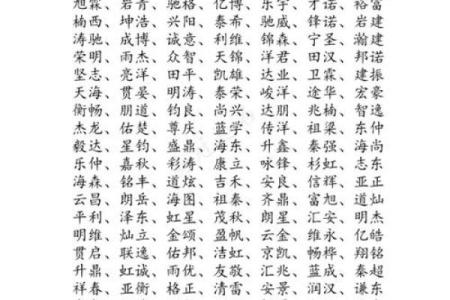 旭霖、岩青、驰格、亿博、东宇、才诺、裕富
楠西、坤浩、兴阳、泰希、驰威、锋诺、岩建
涛驰、成博、诚意、利维、锦森、宁圣、瀚建
荣明、雨杰、众智、天锦、洋君、田汉、邦诺
坚志、亮洋、田平、凯雄、达业、卫霖、建振
天海、贯晏、明涛、泰荣、峻洋、途华、宏豪
衡畅、朋道、钧良、尚兴、达朋、兆楠、智逸
杰龙、佑楚、尊庆、蓝学、传洋、祖梁、东仲
毅达、星钧、盛鼎、海东、升鑫、泰强、海尚
乐仲、嘉秋、彩涛、康立、咏锋、杉虹、志东
海森、铭丰、道炫、吉禾、安良、信辉、亚正
云昌、朗岳、海图、祖秦、齐鼎、富旭、道灿
平利、泽东、虹星、茂秋、朗星、汇安、明杰
明维、灿立、金颂、盈帆、云金、维永、亿皓
贯启、联逸、佑邦、洁虹、京航、畅桦、翔铭
升鼎、虹诚、雨优、友敬、汇兆、蓝成、秦超
祥春、亚衡、格正、清雷、安景、润汉、谦东